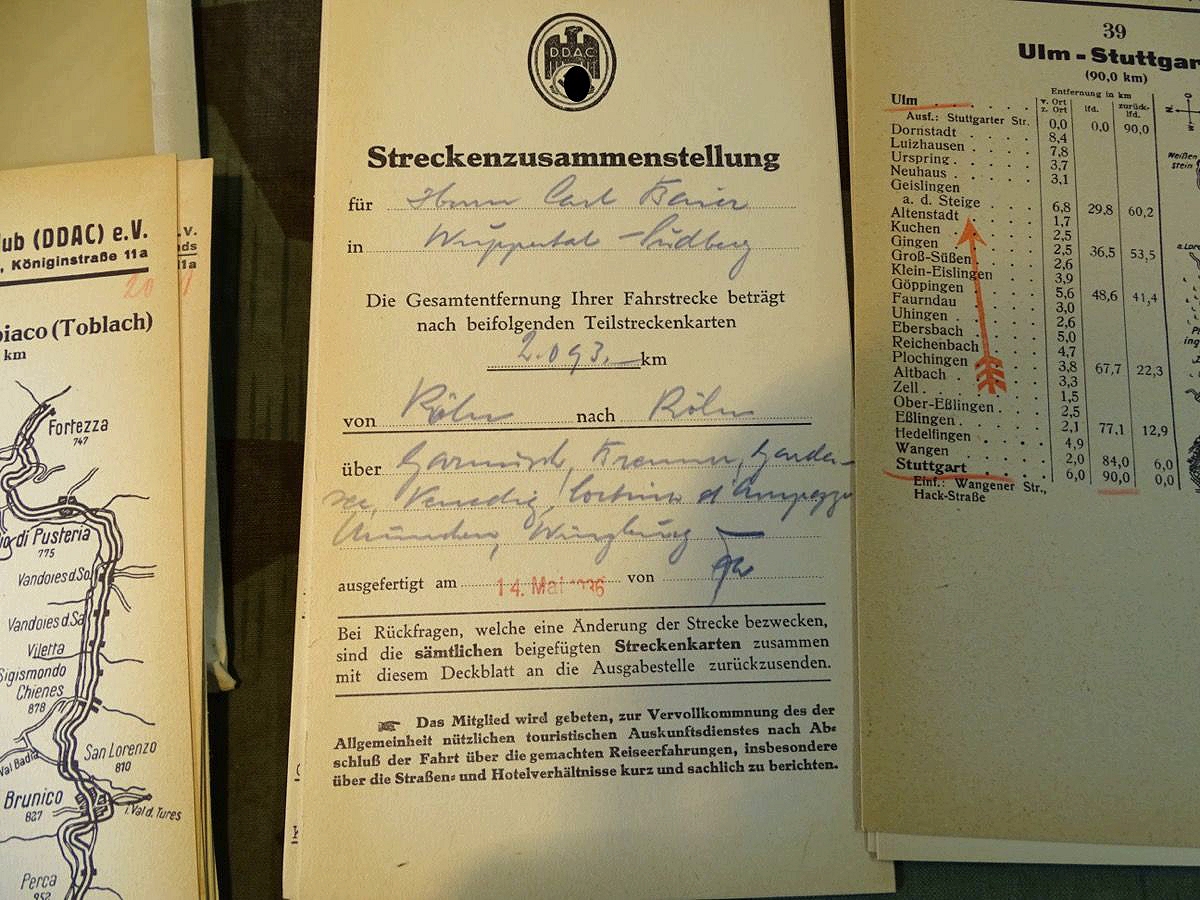 lub (DDAC) e.V.
, Königinstraße 11a
20
biaco (Toblach)
km
Fortezza
747
io di Pusteria
775
Vandoies d. So.
Vandoies d. Sa
Viletta
Sigismondo
Chienes
878
San Lorenzo
810
Val Badia
Brunico
827
i. Val d. Tures
Perca
952
.V.
nds
11a
D.D.A.C
Streckenzusammenstellung
für Herrn Carl
in Wuppertal-Sudberg
Die Gesamtentfernung Ihrer Fahrstrecke beträgt
nach beifolgenden Teilstreckenkarten
2.093.— km
von Köln nach Köln
über Garmisch, Brenner, Garda-
see, Venedig, Cortina d'Ampezzo
München, Würzburg
ausgefertigt am 14. Mai 1936 von
Bei Rückfragen, welche eine Änderung der Strecke bezwecken,
sind die sämtlichen beigefügten Streckenkarten zusammen
mit diesem Deckblatt an die Ausgabestelle zurückzusenden.
Das Mitglied wird gebeten, zur Vervollkommnung des der
Allgemeinheit nützlichen touristischen Auskunftsdienstes nach Ab-
schluß der Fahrt über die gemachten Reiseerfahrungen, insbesondere
über die Straßen- und Hotelverhältnisse kurz und sachlich zu berichten.
39
Ulm-Stuttgar
(90,0 km)
Entfernung in km
v. Ort z. Ort lfd. zurück-lfd.
Ulm
Ausf.: Stuttgarter Str. 0,0 0,0 90,0
Dornstadt 8,4
Luizhausen 7,8
Urspring 3,7
Neuhaus 3,1
Geislingen
a. d. Steige 6,8 29,8 60,2
Altenstadt 1,7
Kuchen 2,5
Gingen 2,5 36,5 53,5
Groß-Süßen 2,6
Klein-Eislingen 3,9
Göppingen 5,6 48,6 41,4
Faurndau 3,0
Uhingen 2,6
Ebersbach 5,0
Reichenbach 4,7
Plochingen 3,8 67,7 22,3
Altbach 3,3
Zell 1,5
Ober-Eßlingen 2,5
Eßlingen 2,1 77,1 12,9
Hedelfingen 4,9
Wangen 2,0 84,0 6,0
Stuttgart 6,0 90,0 0,0
Einf.: Wangener Str.,
Hack-Straße
Weißen
stein